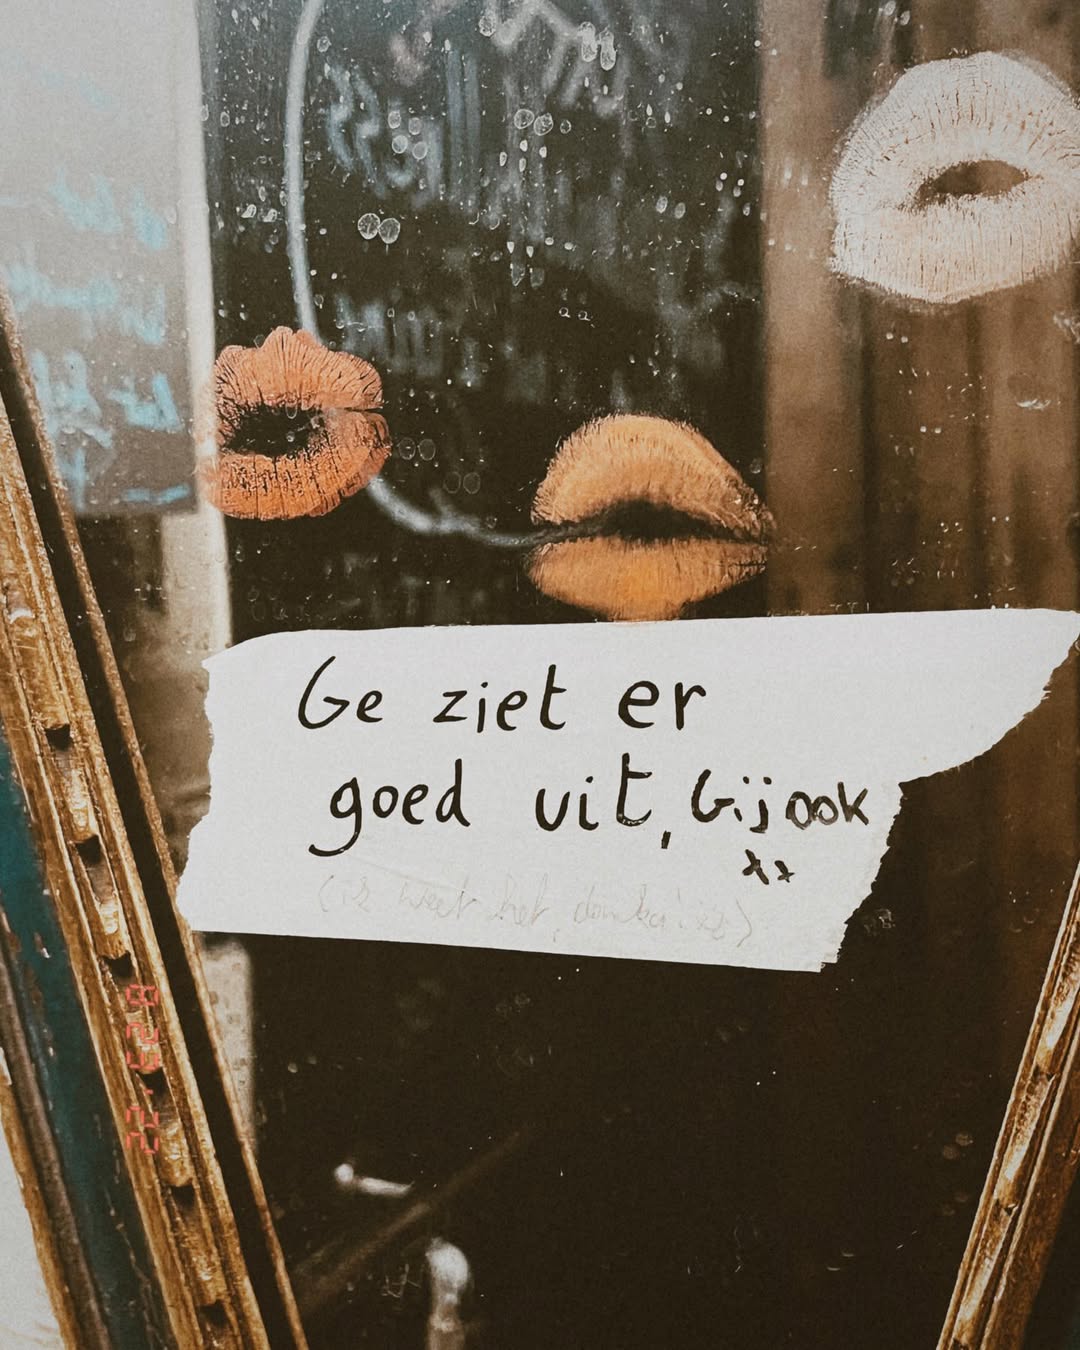 Ge ziet er
goed uit, Gij ook
xx
(ik weet het,
8 29 '22